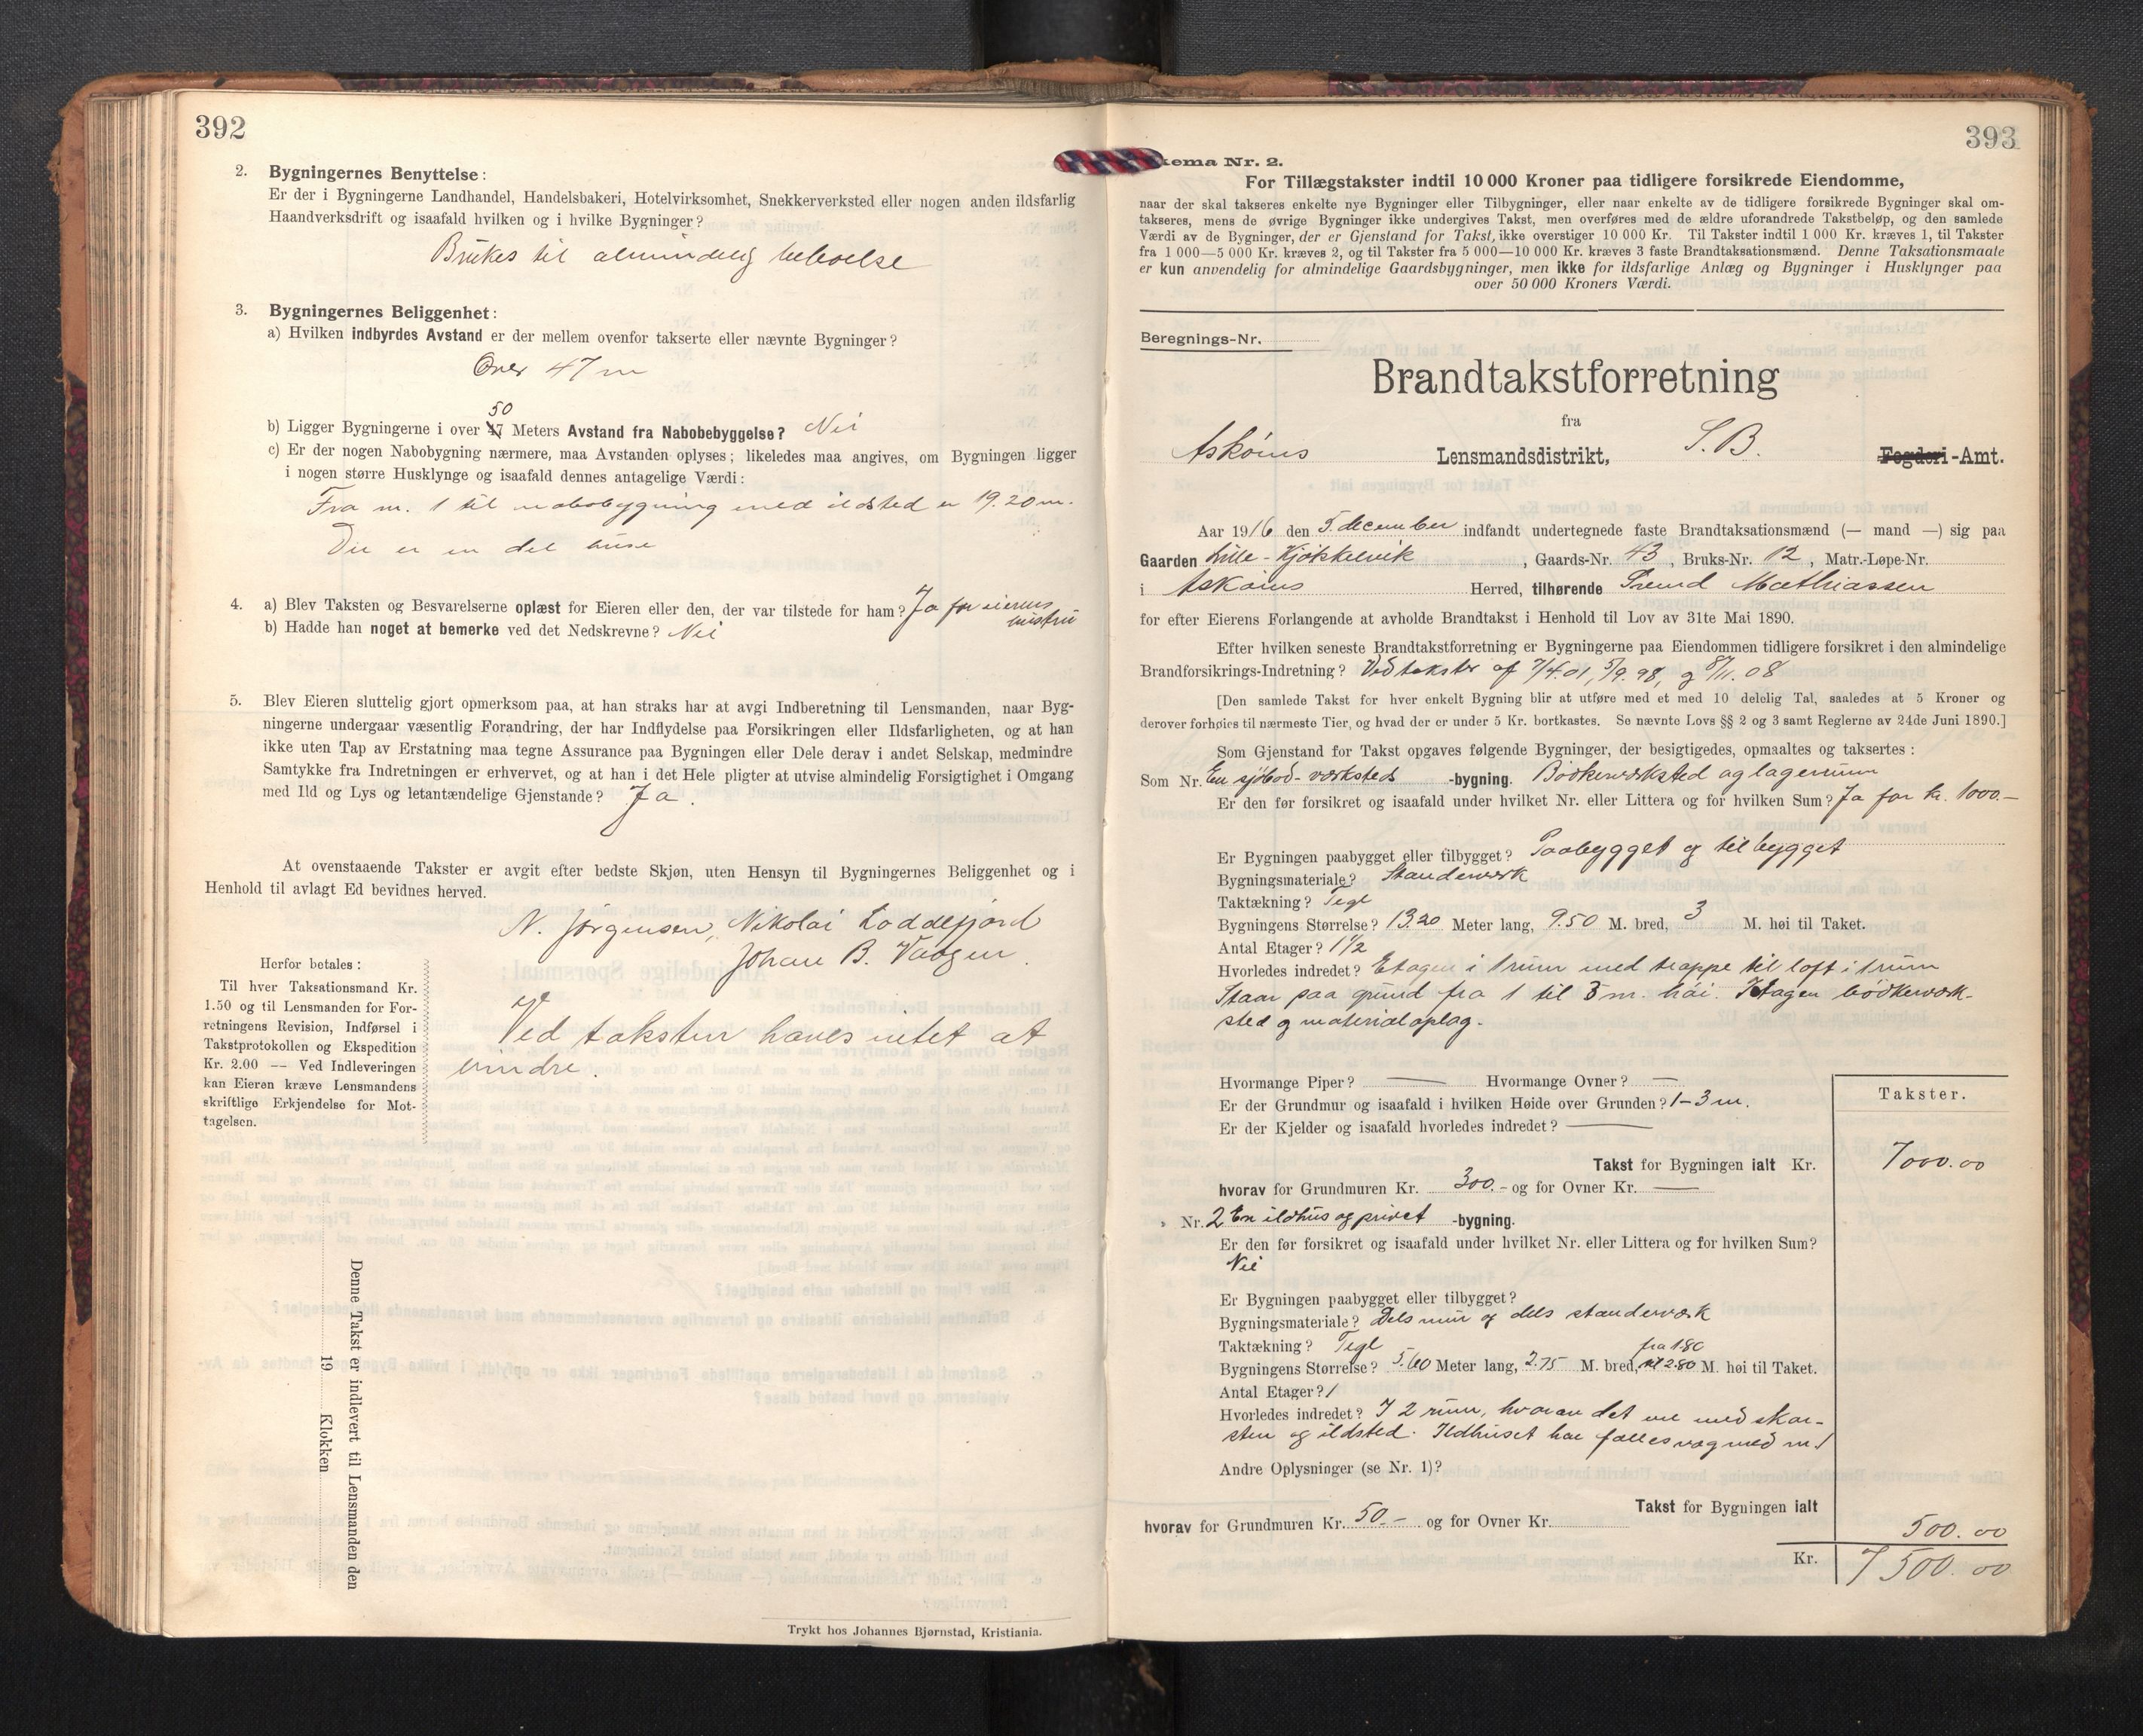 392
2. Bygningernes Benyttelse:
Er der i Bygningerne Landhandel, Handelsbakeri, Hotelvirksomhet, Snekkerverksted eller nogen anden ildsfarlig
Haandverksdrift og isaafald hvilken og i hvilke Bygninger?
Brukes til almindelig beboelse
3. Bygningernes Beliggenhet:
a) Hvilken indbyrdes Avstand er der mellem ovenfor takserte eller nævnte Bygninger?
Over 47 m
50
b) Ligger Bygningerne i over 47 Meters Avstand fra Nabobebyggelse? Nei
c) Er der nogen Nabobygning nærmere, maa Avstanden oplyses; likeledes maa angives, om Bygningen ligger
i nogen større Husklynge og isaafald dennes antagelige Værdi:
Fra nr. 1 til nabobygning med ildsted er 19.20 m.
Der er en del huse
4. a) Blev Taksten og Besvarelserne oplæst for Eieren eller den, der var tilstede for ham? Ja for eierens
hustru
b) Hadde han noget at bemerke ved det Nedskrevne? Nei
5. Blev Eieren sluttelig gjort opmerksom paa, at han straks har at avgi Indberetning til Lensmanden, naar Byg-
ningerne undergaar væsentlig Forandring, der har Indflydelse paa Forsikringen eller Ildsfarligheten, og at han
ikke uten Tap av Erstatning maa tegne Assurance paa Bygningen eller Dele derav i andet Selskap, medmindre
Samtykke fra Indretningen er erhvervet, og at han i det Hele pligter at utvise almindelig Forsigtighet i Omgang
med Ild og Lys og letantændelige Gjenstande? Ja.
At ovenstaaende Takster er avgit efter bedste Skjøn, uten Hensyn til Bygningernes Beliggenhet og i
Henhold til avlagt Ed bevidnes herved.
N. Jørgensen, Nikolai Loddefjord
Johan B. Vaagen.
Herfor betales:
Til hver Taksationsmand Kr.
1.50 og til Lensmanden for For-
retningens Revision, Indførsel i
Takstprotokollen og Ekspedition
Kr. 2.00 — Ved Indleveringen
kan Eieren kræve Lensmandens
skriftlige Erkjendelse for Mot-
tagelsen.
Ved taksten haves intet at
erindre.
Denne Takst er indlevert til Lensmanden den
19 Klokken
Trykt hos Johannes Bjørnstad, Kristiania.
393
kema Nr. 2.
For Tillægstakster indtil 10 000 Kroner paa tidligere forsikrede Eiendomme,
naar der skal takseres enkelte nye Bygninger eller Tilbygninger, eller naar enkelte av de tidligere forsikrede Bygninger skal om-
takseres, mens de øvrige Bygninger ikke undergives Takst, men overføres med de ældre uforandrede Takstbeløp, og den samlede
Værdi av de Bygninger, der er Gjenstand for Takst, ikke overstiger 10 000 Kr. Til Takster indtil 1 000 Kr. kræves 1, til Takster
fra 1 000—5 000 Kr. kræves 2, og til Takster fra 5 000—10 000 Kr. kræves 3 faste Brandtaksationsmænd. Denne Taksationsmaate
er kun anvendelig for almindelige Gaardsbygninger, men ikke for ildsfarlige Anlæg og Bygninger i Husklynger paa
over 50 000 Kroners Værdi.
Beregnings-Nr.
Brandtakstforretning
fra
Askøins Lensmandsdistrikt, S. B. Fogderi-Amt.
Aar 1916 den 5. december indfandt undertegnede faste Brandtaksationsmænd (— mand —) sig paa
Gaarden Lille-Kjøkkelvik, Gaards-Nr. 43, Bruks-Nr. 12, Matr.-Løpe-Nr.
i Askøins Herred, tilhørende Trend Mathiassen
for efter Eierens Forlangende at avholde Brandtakst i Henhold til Lov av 31te Mai 1890.
Efter hvilken seneste Brandtakstforretning er Bygningerne paa Eiendommen tidligere forsikret i den almindelige
Brandforsikrings-Indretning? Ved takster af 7/4.01, 5/9.98, og 8/11.08
[Den samlede Takst for hver enkelt Bygning blir at utføre med et med 10 delelig Tal, saaledes at 5 Kroner og
derover forhøies til nærmeste Tier, og hvad der er under 5 Kr. bortkastes. Se nævnte Lovs §§ 2 og 3 samt Reglerne av 24de Juni 1890.]
Som Gjenstand for Takst opgaves følgende Bygninger, der besigtigedes, opmaaltes og taksertes:
Som Nr. En sjøbod-værksteds-bygning. Bødkerværksted og lagerrum
Er den før forsikret og isaafald under hvilket Nr. eller Littera og for hvilken Sum? Ja for kr. 1000.—
Er Bygningen paabygget eller tilbygget? Paabygget og tilbygget
Bygningsmateriale? Standerværk
Taktækning? Tegl
Bygningens Størrelse? 13.20 Meter lang, 9.50 M. bred, 3 M. høi til Taket.
Antal Etager? 1 1/2
Hvorledes indredet? Etagen i 1 rum med trappe til loft i 1 rum
Staar paa grund fra 1 til 3 m. høi. Etagen bødkerværk-
sted og materialoplag.
Hvormange Piper? — Hvormange Ovner? —
Er der Grundmur og isaafald i hvilken Høide over Grunden? 1–3 m.
Er der Kjelder og isaafald hvorledes indredet? —
Takster.
Takst for Bygningen ialt Kr. 7000.00
hvorav for Grundmuren Kr. 300.- og for Ovner Kr. —
" Nr. 2 En ildhus og privet -bygning.
Er den før forsikret og isaafald under hvilket Nr. eller Littera og for hvilken Sum?
Nei
Er Bygningen paabygget eller tilbygget?
Bygningsmateriale? Dels mur og dels standerværk
Taktækning? Tegl
fra 1.80
Bygningens Størrelse? 5.60 Meter lang, 2.75 M. bred, til 2.80 M. høi til Taket.
Antal Etager? 1
Hvorledes indredet? I 2 rum, hvorav det ene med skor-
sten og ildsted. Ildhuset har fælles væg med nr. 1
Andre Oplysninger (se Nr. 1)?
Takst for Bygningen ialt
hvorav for Grundmuren Kr. 50.- og for Ovner Kr.
500.00
Kr. 7500.00